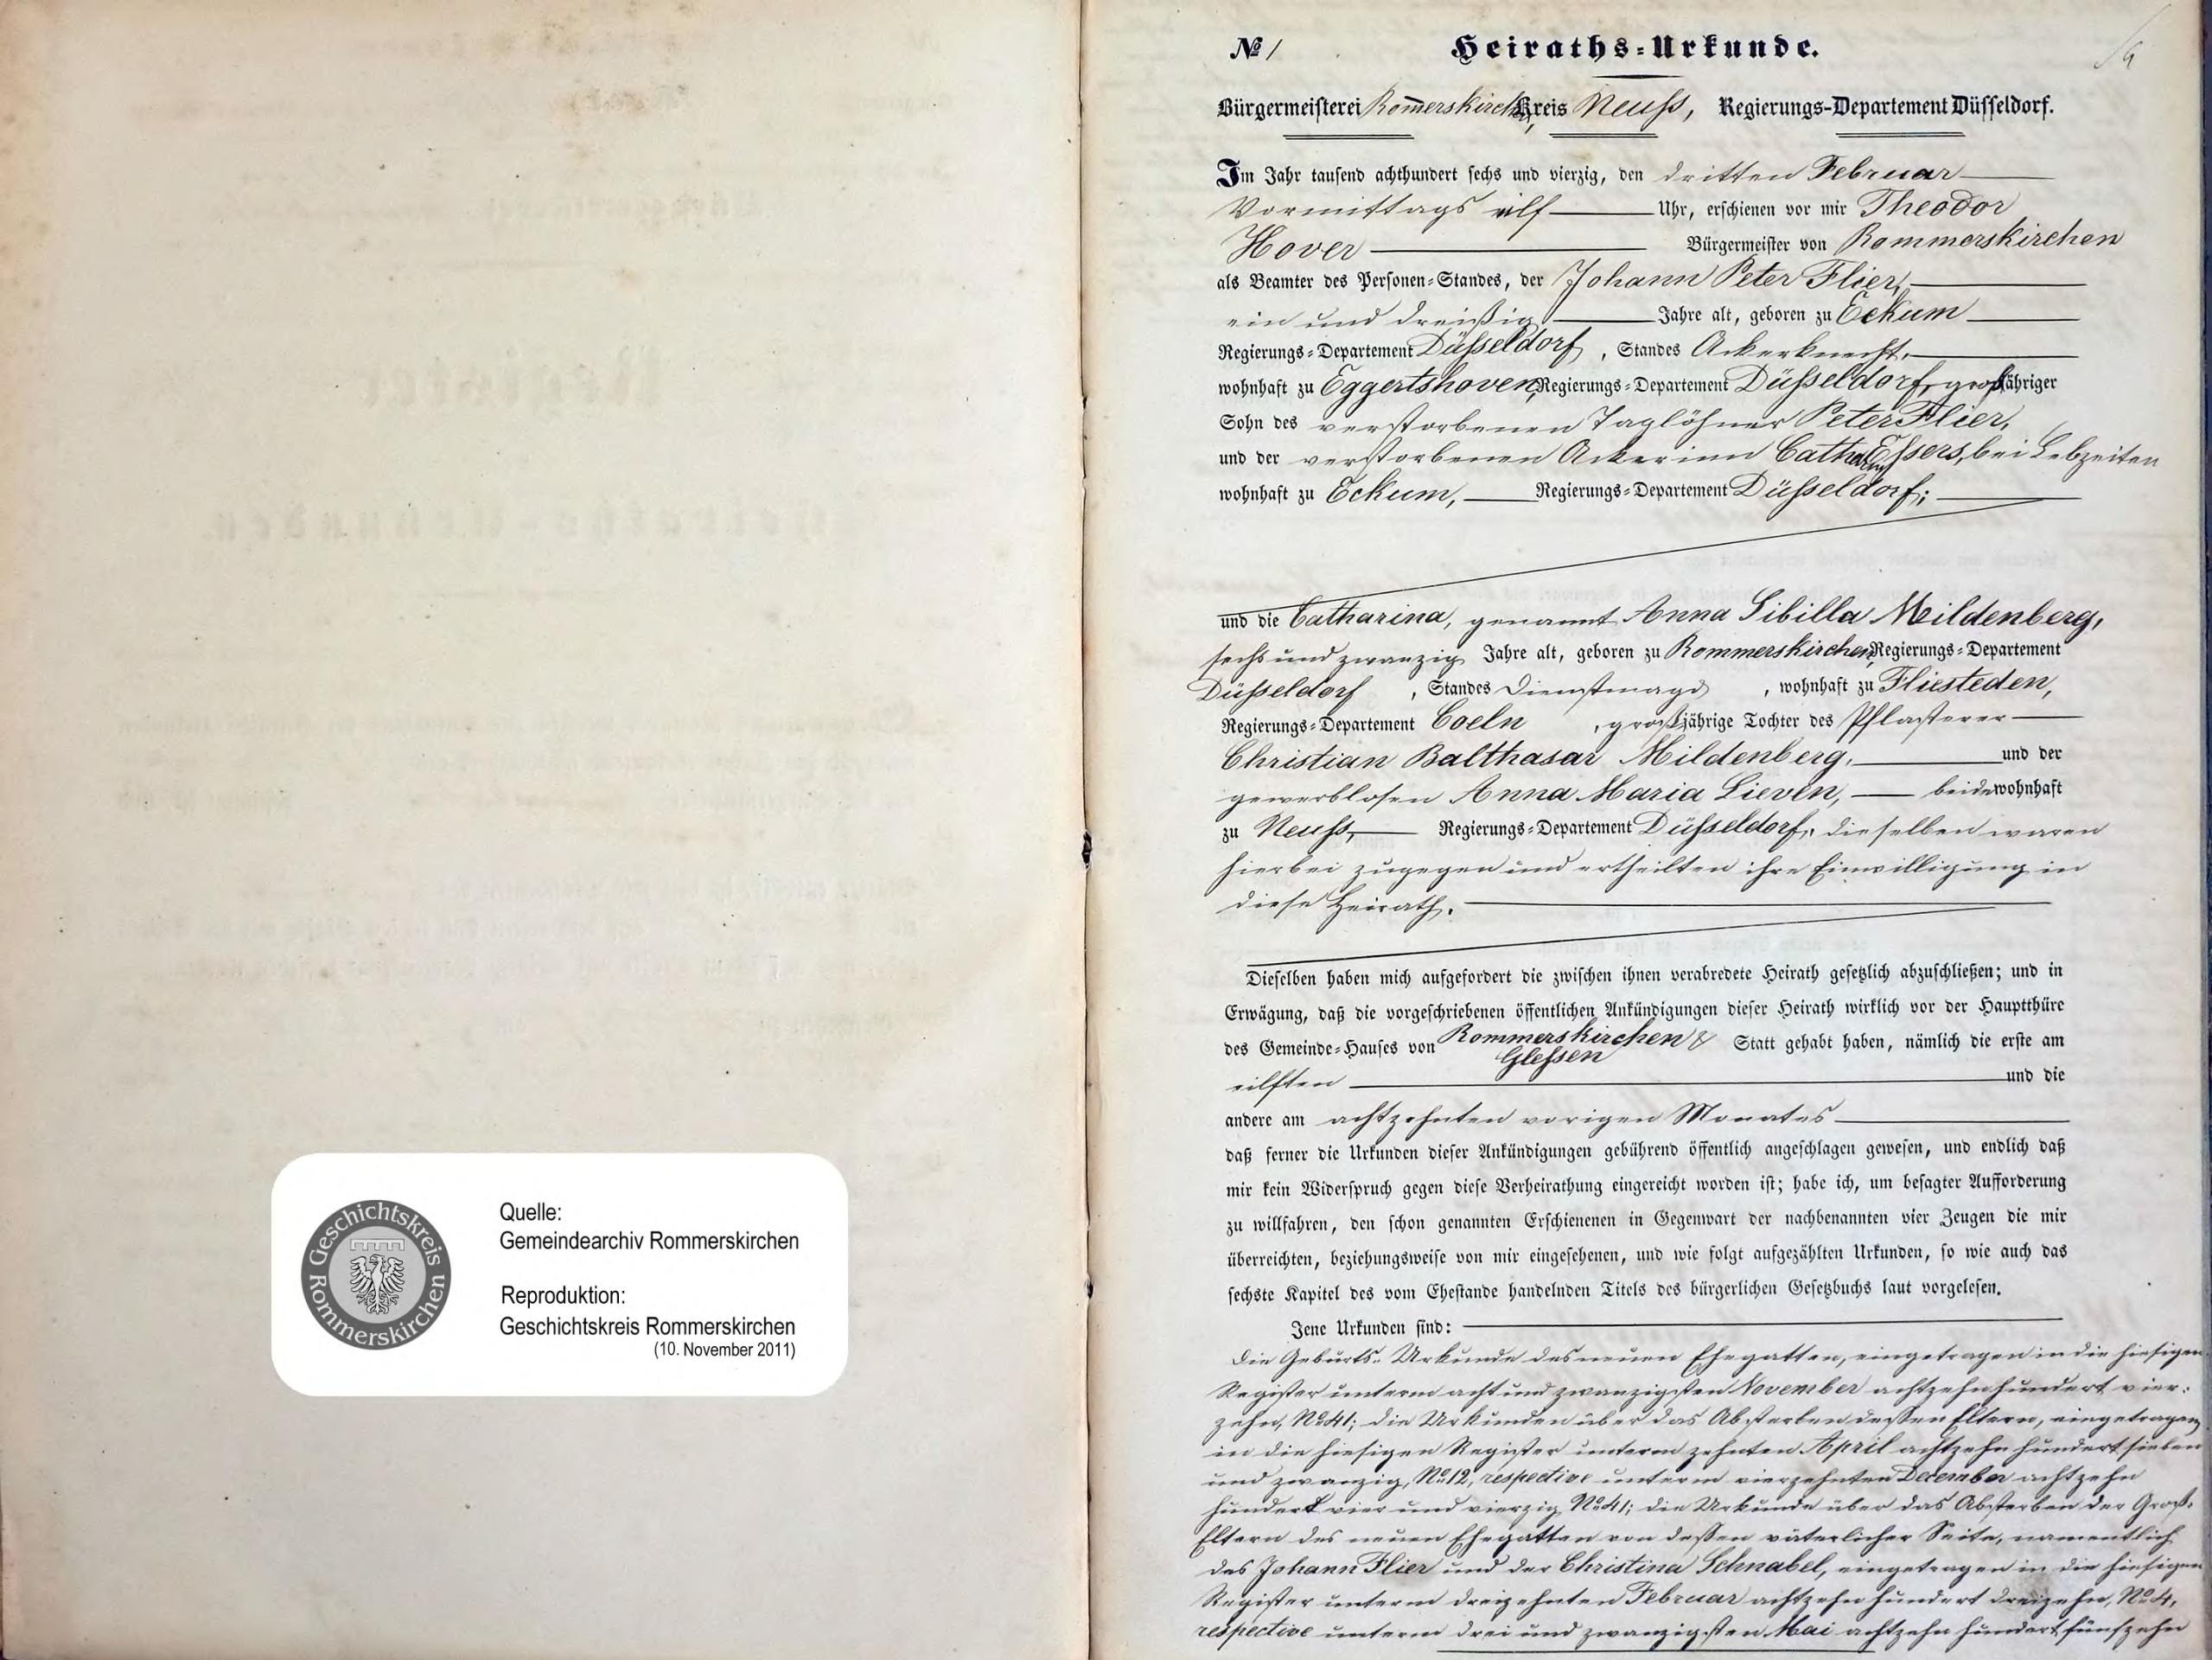 Geschichtskreis Rommerskirchen
Quelle:
Gemeindearchiv Rommerskirchen
Reproduktion:
Geschichtskreis Rommerskirchen
(10. November 2011)
№ 1
Heiraths-Urkunde.
Bürgermeisterei Rom̅erskirchen, Kreis Neuß, Regierungs-Departement Düsseldorf.
Im Jahr tausend achthundert sechs und vierzig, den dritten Februar
Vormittags eilf Uhr, erschienen vor mir Theodor
Hover Bürgermeister von Rommerskirchen
als Beamter des Personen-Standes, der Johann Peter Flier,
ein und dreißig Jahre alt, geboren zu Eckum
Regierungs-Departement Düßeldorf, Standes Ackerknecht,
wohnhaft zu Eggertshoven, Regierungs-Departement Düßeldorf, großjähriger
Sohn des verstorbenen Taglöhner Peter Flier,
und der verstorbenen Ackerinn Catharina Eßers, bei Lebzeiten
wohnhaft zu Eckum, Regierungs-Departement Düßeldorf;
und die Catharina, genannt Anna Sibilla Mildenberg,
sechs und zwanzig Jahre alt, geboren zu Rommerskirchen, Regierungs-Departement
Düßeldorf, Standes Dienstmagd, wohnhaft zu Fliesteden,
Regierungs-Departement Coeln, großjährige Tochter des Pflasterer
Christian Balthasar Mildenberg, und der
gewerblosen Anna Maria Lieven, beide wohnhaft
zu Neuß, Regierungs-Departement Düßeldorf, dieselben waren
hierbei zugegen und ertheilten ihre Einwilligung in
diese Heirath.
Dieselben haben mich aufgefordert die zwischen ihnen verabredete Heirath gesetzlich abzuschließen; und in
Erwägung, daß die vorgeschriebenen öffentlichen Ankündigungen dieser Heirath wirklich vor der Hauptthüre
des Gemeinde-Hauses von Rommerskirchen & Gleßen Statt gehabt haben, nämlich die erste am
eilften und die
andere am achtzehnten vorigen Monates
daß ferner die Urkunden dieser Ankündigungen gebührend öffentlich angeschlagen gewesen, und endlich daß
mir kein Widerspruch gegen diese Verheirathung eingereicht worden ist; habe ich, um besagter Aufforderung
zu willfahren, den schon genannten Erschienenen in Gegenwart der nachbenannten vier Zeugen die mir
überreichten, beziehungsweise von mir eingesehenen, und wie folgt aufgezählten Urkunden, so wie auch das
sechste Kapitel des vom Ehestande handelnden Titels des bürgerlichen Gesetzbuchs laut vorgelesen.
Jene Urkunden sind:
die Geburts-Urkunde des neuen Ehegatten, eingetragen in die hiesigen
Register unterm acht und zwanzigsten November achtzehnhundert vier-
zehn, No 41; die Urkunden über das Absterben deßen Eltern, eingetragen
in die hiesigen Register unterm zehnten April achtzehn hundert sieben
und zwanzig, No 12, respective unterm vierzehnten December achtzehn
hundert vier und vierzig No 41; die Urkunde über das Absterben der Groß-
Eltern des neuen Ehegatten von deßen väterlicher Seite, namentlich
des Johann Flier und der Christina Schnabel, eingetragen in die hiesigen
Register unterm dreizehnten Februar achtzehn hundert dreizehn, No 4,
respective unterm drei und zwanzigsten Mai achtzehn hundert fünfzehn